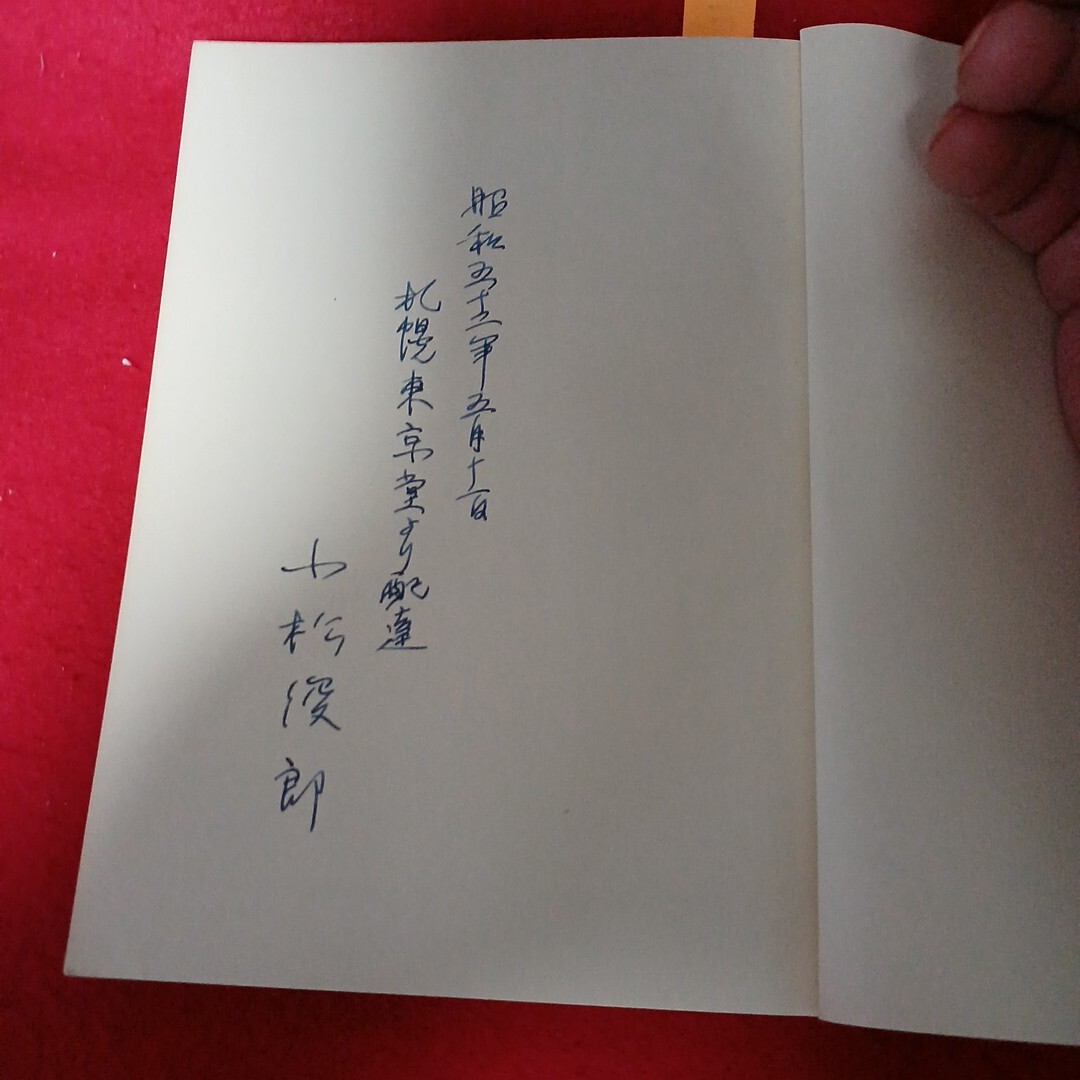 昭和五十三年五月十一日
札幌東京堂より配達
小松俊郎